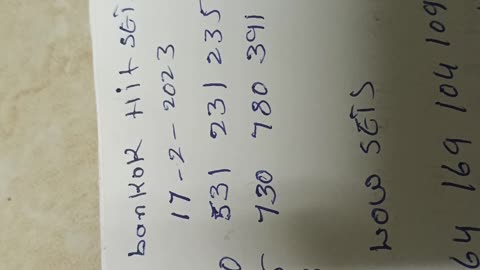 bonkok Hit SET
17-2-2023
531 231 235
730 780 391
wow SETS
64 169 104 109